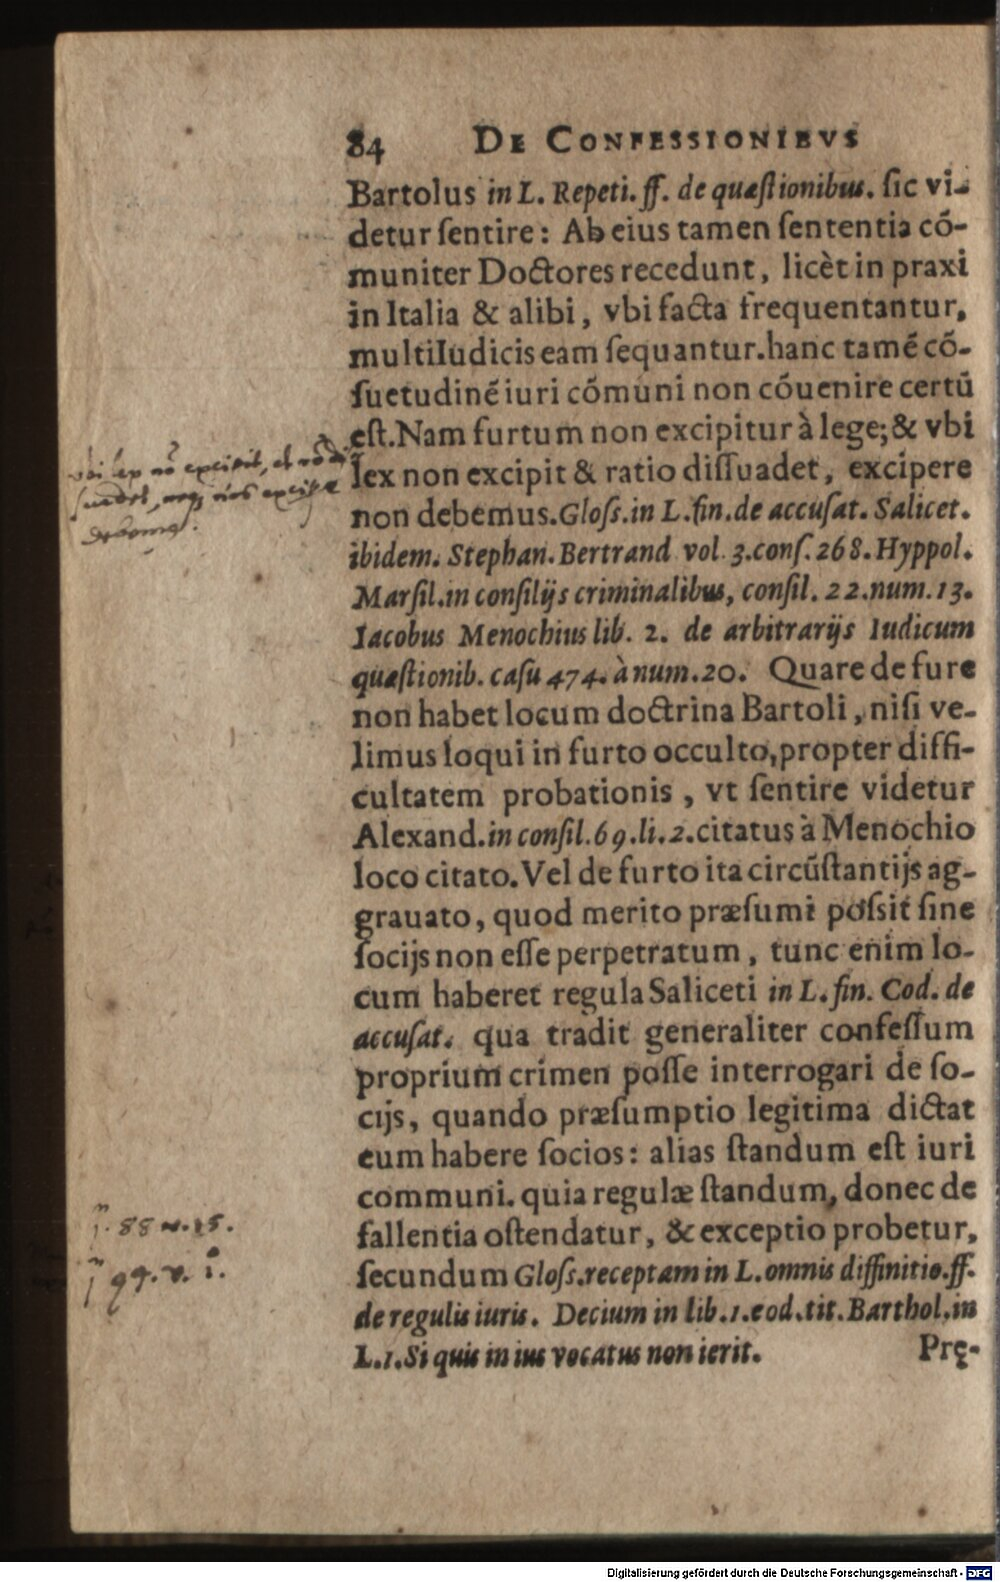 84 DE CONFESSIONIBVS
Bartolus in L. Repeti. ff. de quæſtionibus. ſic vi-
detur ſentire: Ab eius tamen ſententia cō-
muniter Doctores recedunt, licèt in praxi
in Italia & alibi, vbi facta frequentantur,
multi Iudicis eam ſequantur. hanc tamē cō-
ſuetudinē iuri cōmuni non cōuenire certū
eſt. Nam furtum non excipitur à lege; & vbi
lex non excipit & ratio diſſuadet, excipere
non debemus. Gloſſ. in L. fin. de accuſat. Salicet.
ibidem. Stephan. Bertrand vol. 3. conſ. 268. Hyppol.
Marſil. in conſilijs criminalibus, conſil. 22. num. 13.
Iacobus Menochius lib. 2. de arbitrarijs Iudicum
quæſtionib. caſu 474. à num. 20. Quare de fure
non habet locum doctrina Bartoli, niſi ve-
limus loqui in furto occulto, propter diffi-
cultatem probationis, vt ſentire videtur
Alexand. in conſil. 69. li. 2. citatus à Menochio
loco citato. Vel de furto ita circūſtantijs ag-
grauato, quod merito præſumi poſsit ſine
ſocijs non eſſe perpetratum, tunc enim lo-
cum haberet regula Saliceti in L. fin. Cod. de
accuſat. qua tradit generaliter confeſſum
proprium crimen poſſe interrogari de ſo-
cijs, quando præſumptio legitima dictat
eum habere ſocios: alias ſtandum eſt iuri
communi. quia regulæ ſtandum, donec de
fallentia oſtendatur, & exceptio probetur,
ſecundum Gloſſ. receptam in L. omnis diffinitio. ff.
de regulis iuris. Decium in lib. 1. eod. tit. Barthol. in
L. 1. Si quis in ius vocatus non ierit. Prę-
vbi lex nō excipit, et
suadet, neq; nos excipere
debemus.
88 n. 15.
99. n. 1.
Digitalisierung gefördert durch die Deutsche Forschungsgemeinschaft - DFG